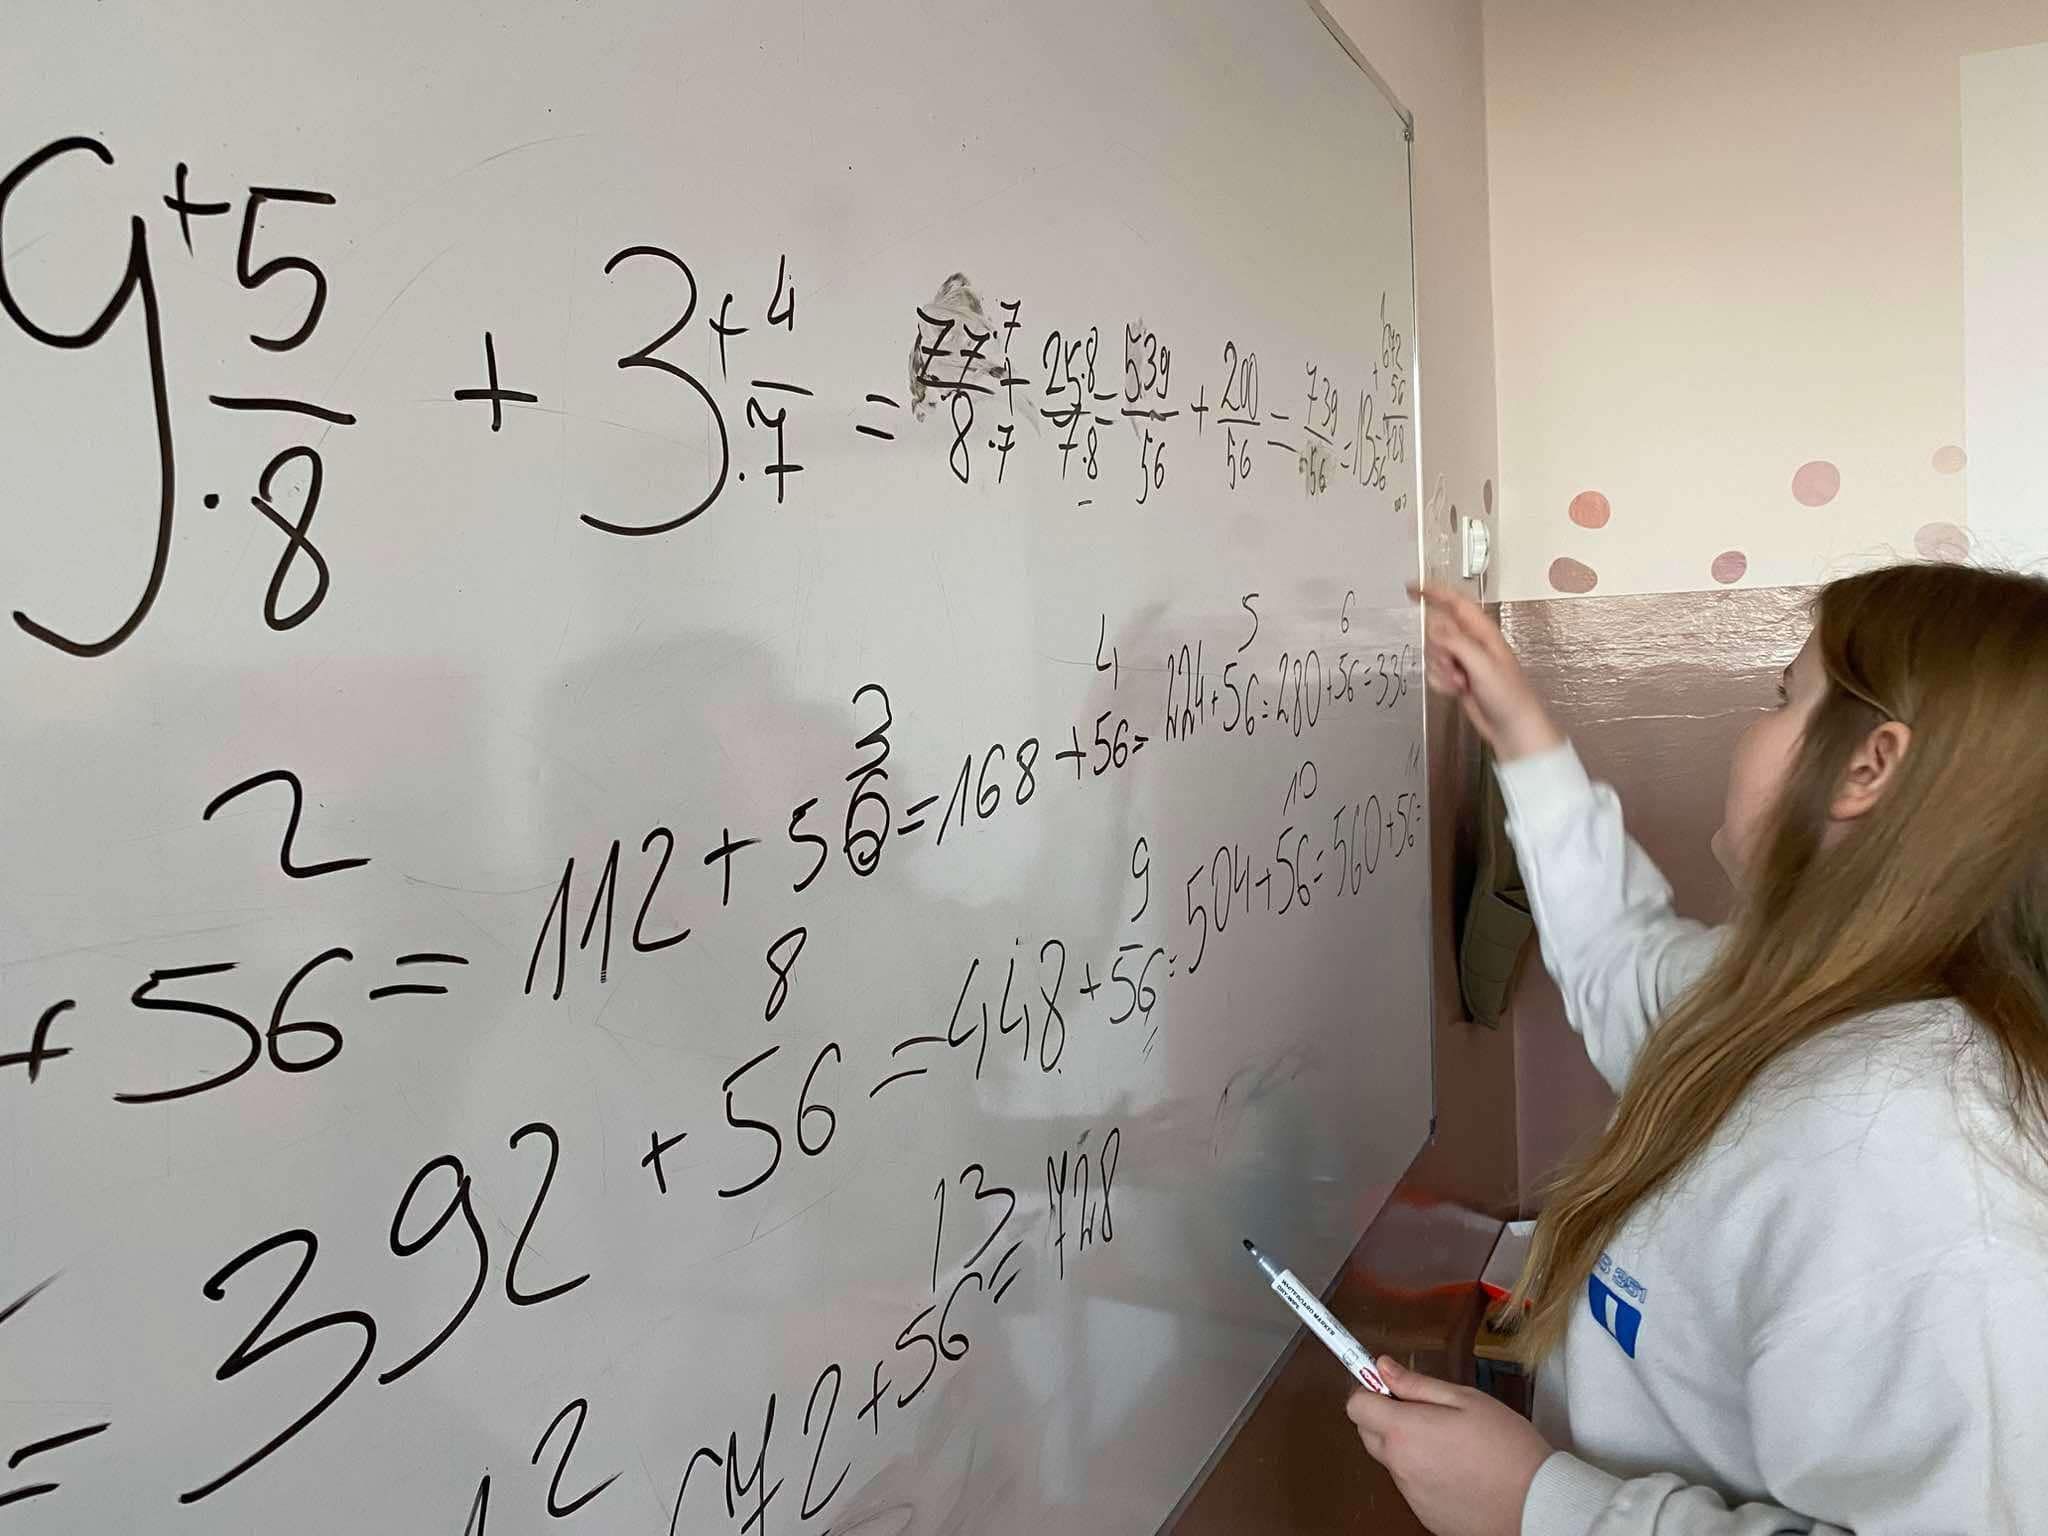 9 + 5/8 + 3 + 4/7 = 77·7/8·7 + 25·8/7·8 = 539/56 + 200/56 = 739/56 = 13
672
+ 56
728
2 3 4 5 6
+ 56 = 112 + 56 = 168 + 56 = 224 + 56 = 280 + 56 = 336
8 9 10 11
= 392 + 56 = 448 + 56 = 504 + 56 = 560 + 56 =
12 13
+ 56 = 728
WHITEBOARD MARKER
DRY-WIPE
351